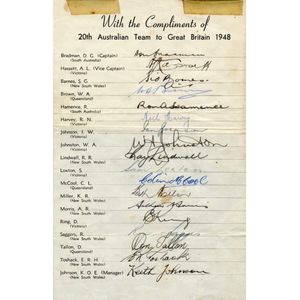 With the Compliments of
20th Australian Team to Great Britain 1948
Bradman, D. G. (Captain)
(South Australia)
Hassett, A. L. (Vice Captain)
(Victoria)
Barnes, S. G.
(New South Wales)
Brown, W. A.
(Queensland)
Hamence, R.
(South Australia)
Ron A Hamence
Harvey, R. N.
(Victoria)
Neil Harvey
Johnson, I. W.
(Victoria)
Johnston, W. A.
(Victoria)
W A Johnston
Lindwall, R. R.
(New South Wales)
Ray Lindwall
Loxton, S.
(Victoria)
McCool, C. L.
(Queensland)
Colin McCool
Miller, K. R.
(New South Wales)
Keith Miller
Morris, A. R.
(New South Wales)
Arthur Morris
Ring, D.
(Victoria)
D Ring
Saggers, R.
(New South Wales)
Tallon, D.
(Queensland)
Don Tallon
Toshack, E. R. H.
(New South Wales)
Johnson, K. O. E. (Manager)
(New South Wales)
Keith Johnson